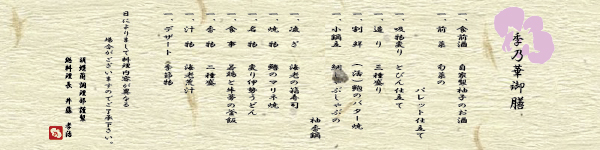 季乃華御膳
一、食前酒 自家製柚子のお酒
一、前菜 旬菜の
パレット仕立て
一、吸物変り とびん仕立て
一、造り 三種盛り
一、割鮮 (活)鮑のバター焼
一、小鍋立 鯛しゃぶしゃぶの
柚香鍋
一、凌ぎ 海老の箱寿司
一、焼物 鰆のマリネ焼
一、名物 変り伊勢うどん
一、食事 若鶏と牛蒡の釜飯
一、香物 二種盛
一、汁物 海老煮汁
一、デザート 季節物
日によりまして料理内容が異なる
場合がございますのでご了承下さい。
胡蝶蘭調理部謹製
総料理長 井藤